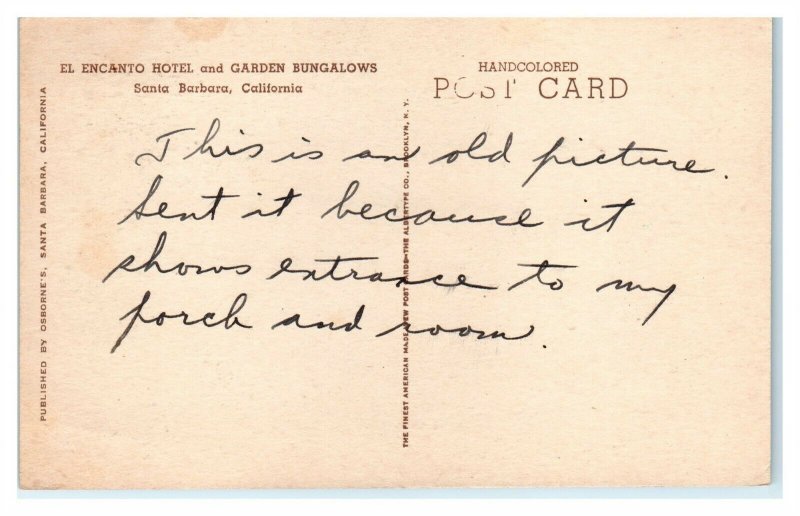 EL ENCANTO HOTEL and GARDEN BUNGALOWS
Santa Barbara, California
HANDCOLORED
POST CARD
This is an old picture.
Sent it because it
shows entrance to my
porch and room.
PUBLISHED BY OSBORNE'S, SANTA BARBARA, CALIFORNIA
THE FINEST AMERICAN MADE VIEW POST CARDS—THE ALBERTYPE CO., BROOKLYN, N. Y.